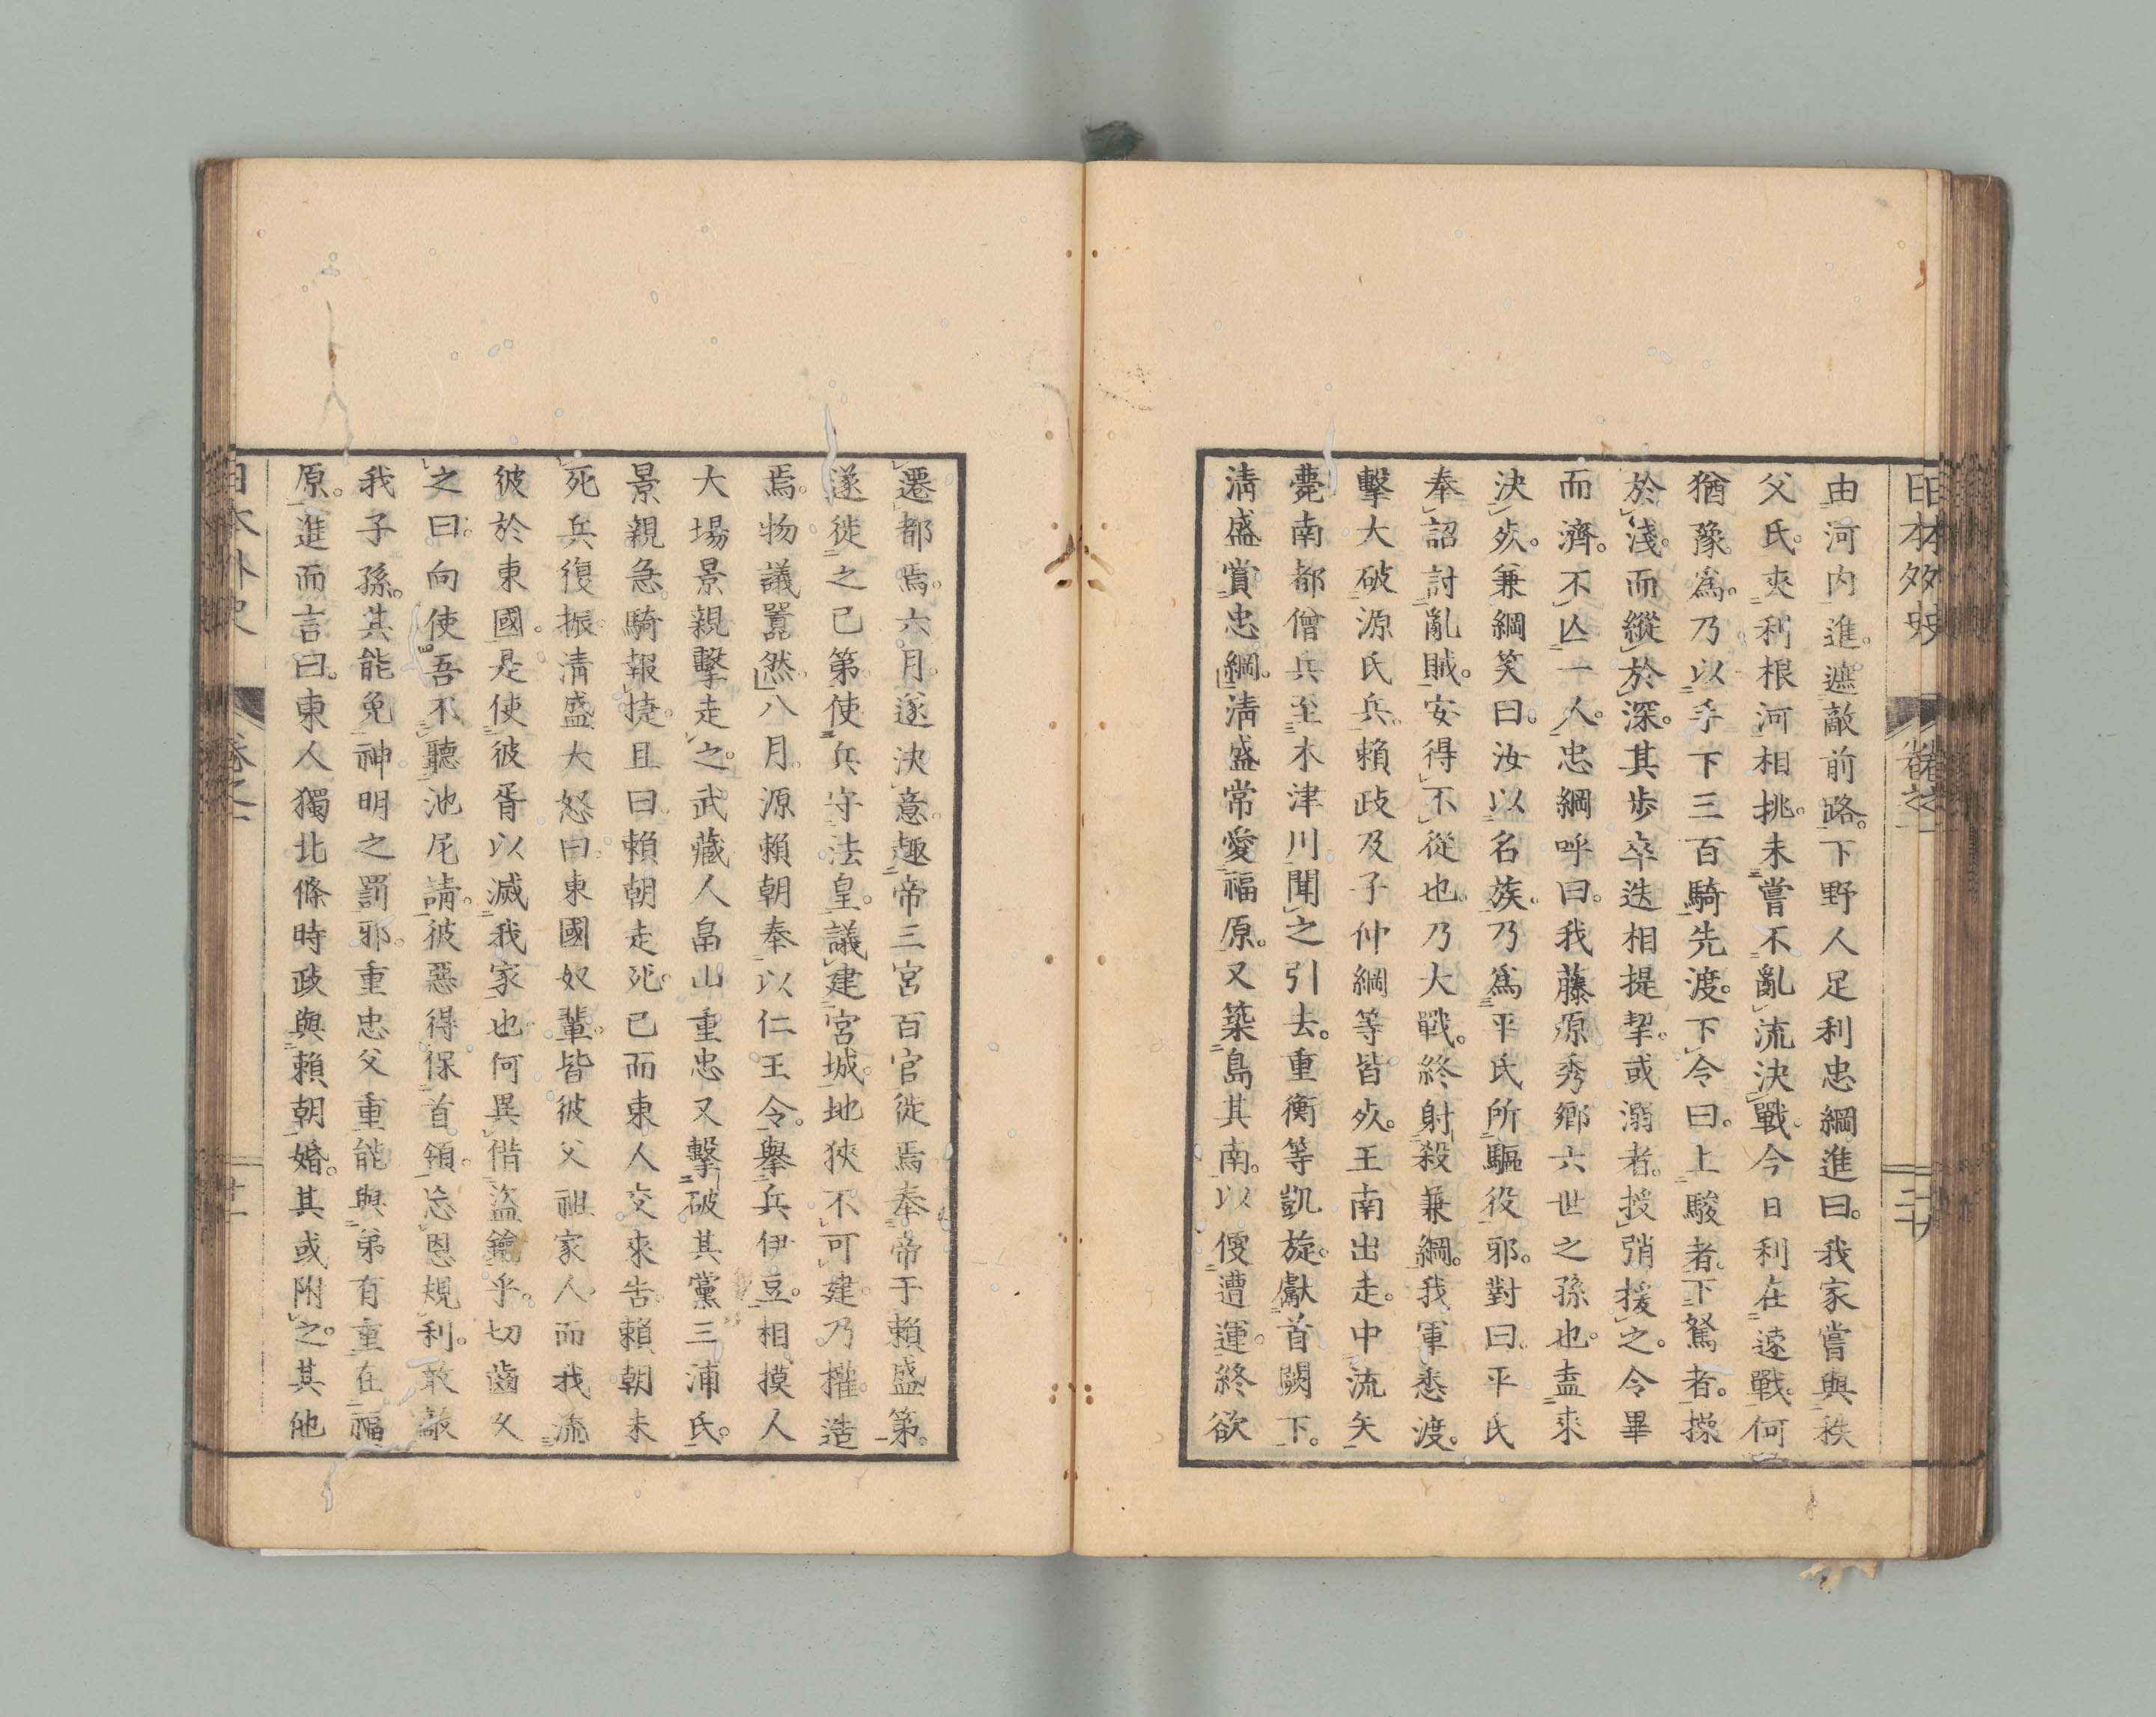 日本外史 卷之一 二十
由河内進。遮敵前路。下野人足利忠綱進曰。我家嘗與秩
父氏。夾利根河相挑。未嘗不亂流決戰。今日利在速戰。何
猶豫爲。乃以手下三百騎先渡。下令曰。上駿者。下駑者。操
於淺。而縱於深。其歩卒迭相提挈。或溺者。授弰援之。令畢
而濟。不亾一人。忠綱呼曰。我藤原秀鄉六世之孫也。盍來
決死。兼綱笑曰。汝以名族。乃爲平氏所驅役邪。對曰。平氏
奉詔討亂賊。安得不從也。乃大戰。終射殺兼綱。我軍悉渡。
擊大破源氏兵。賴政及子仲綱等皆死。王南出走。中流矢
薨。南都僧兵至木津川。聞之引去。重衡等凱旋。獻首闕下。
淸盛賞忠綱。淸盛常愛福原。又築島其南。以便遭運。終欲
遷都焉。六月。遂決意。趣帝三宮百官徙焉。奉帝于賴盛第。
遂徙之己第。使兵守法皇。議建宮城。地狹不可建。乃權造
焉。物議囂然。八月。源賴朝奉以仁王令。擧兵伊豆。相摸人
大場景親擊走之。武藏人畠山重忠又擊破其黨三浦氏。
景親急騎報捷。且曰。賴朝走死。已而東人交來告。賴朝未
死。兵復振。淸盛大怒曰。東國奴輩。皆彼父祖家人。而我流
彼於東國。是使彼胥以滅我家也。何異偕盜鑰乎。切齒久
之曰。向使吾不聽池尼請。彼惡得保首領。忘恩規利。敢敵
我子孫。其能免神明之罰邪。重忠父重能與弟有重在福
原。進而言曰。東人獨北條時政與賴朝婚。其或附之。其他
日本外史 卷之一 廿一